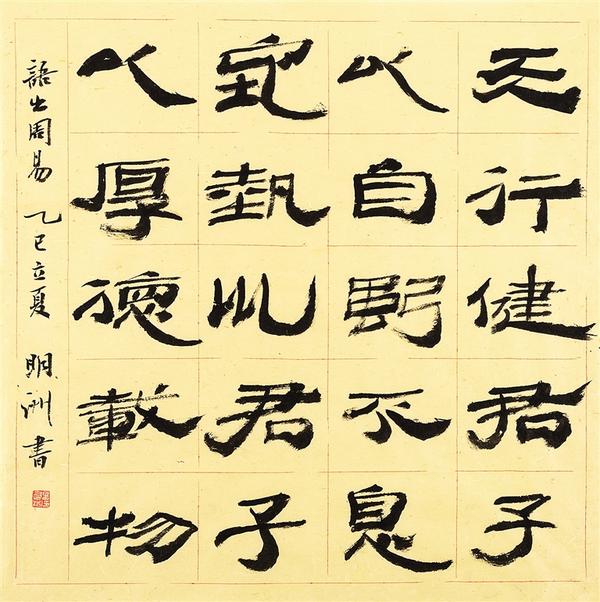 天行健君子
以自彊不息
地勢坤君子
以厚德載物
語出周易 乙巳立夏 明洲書